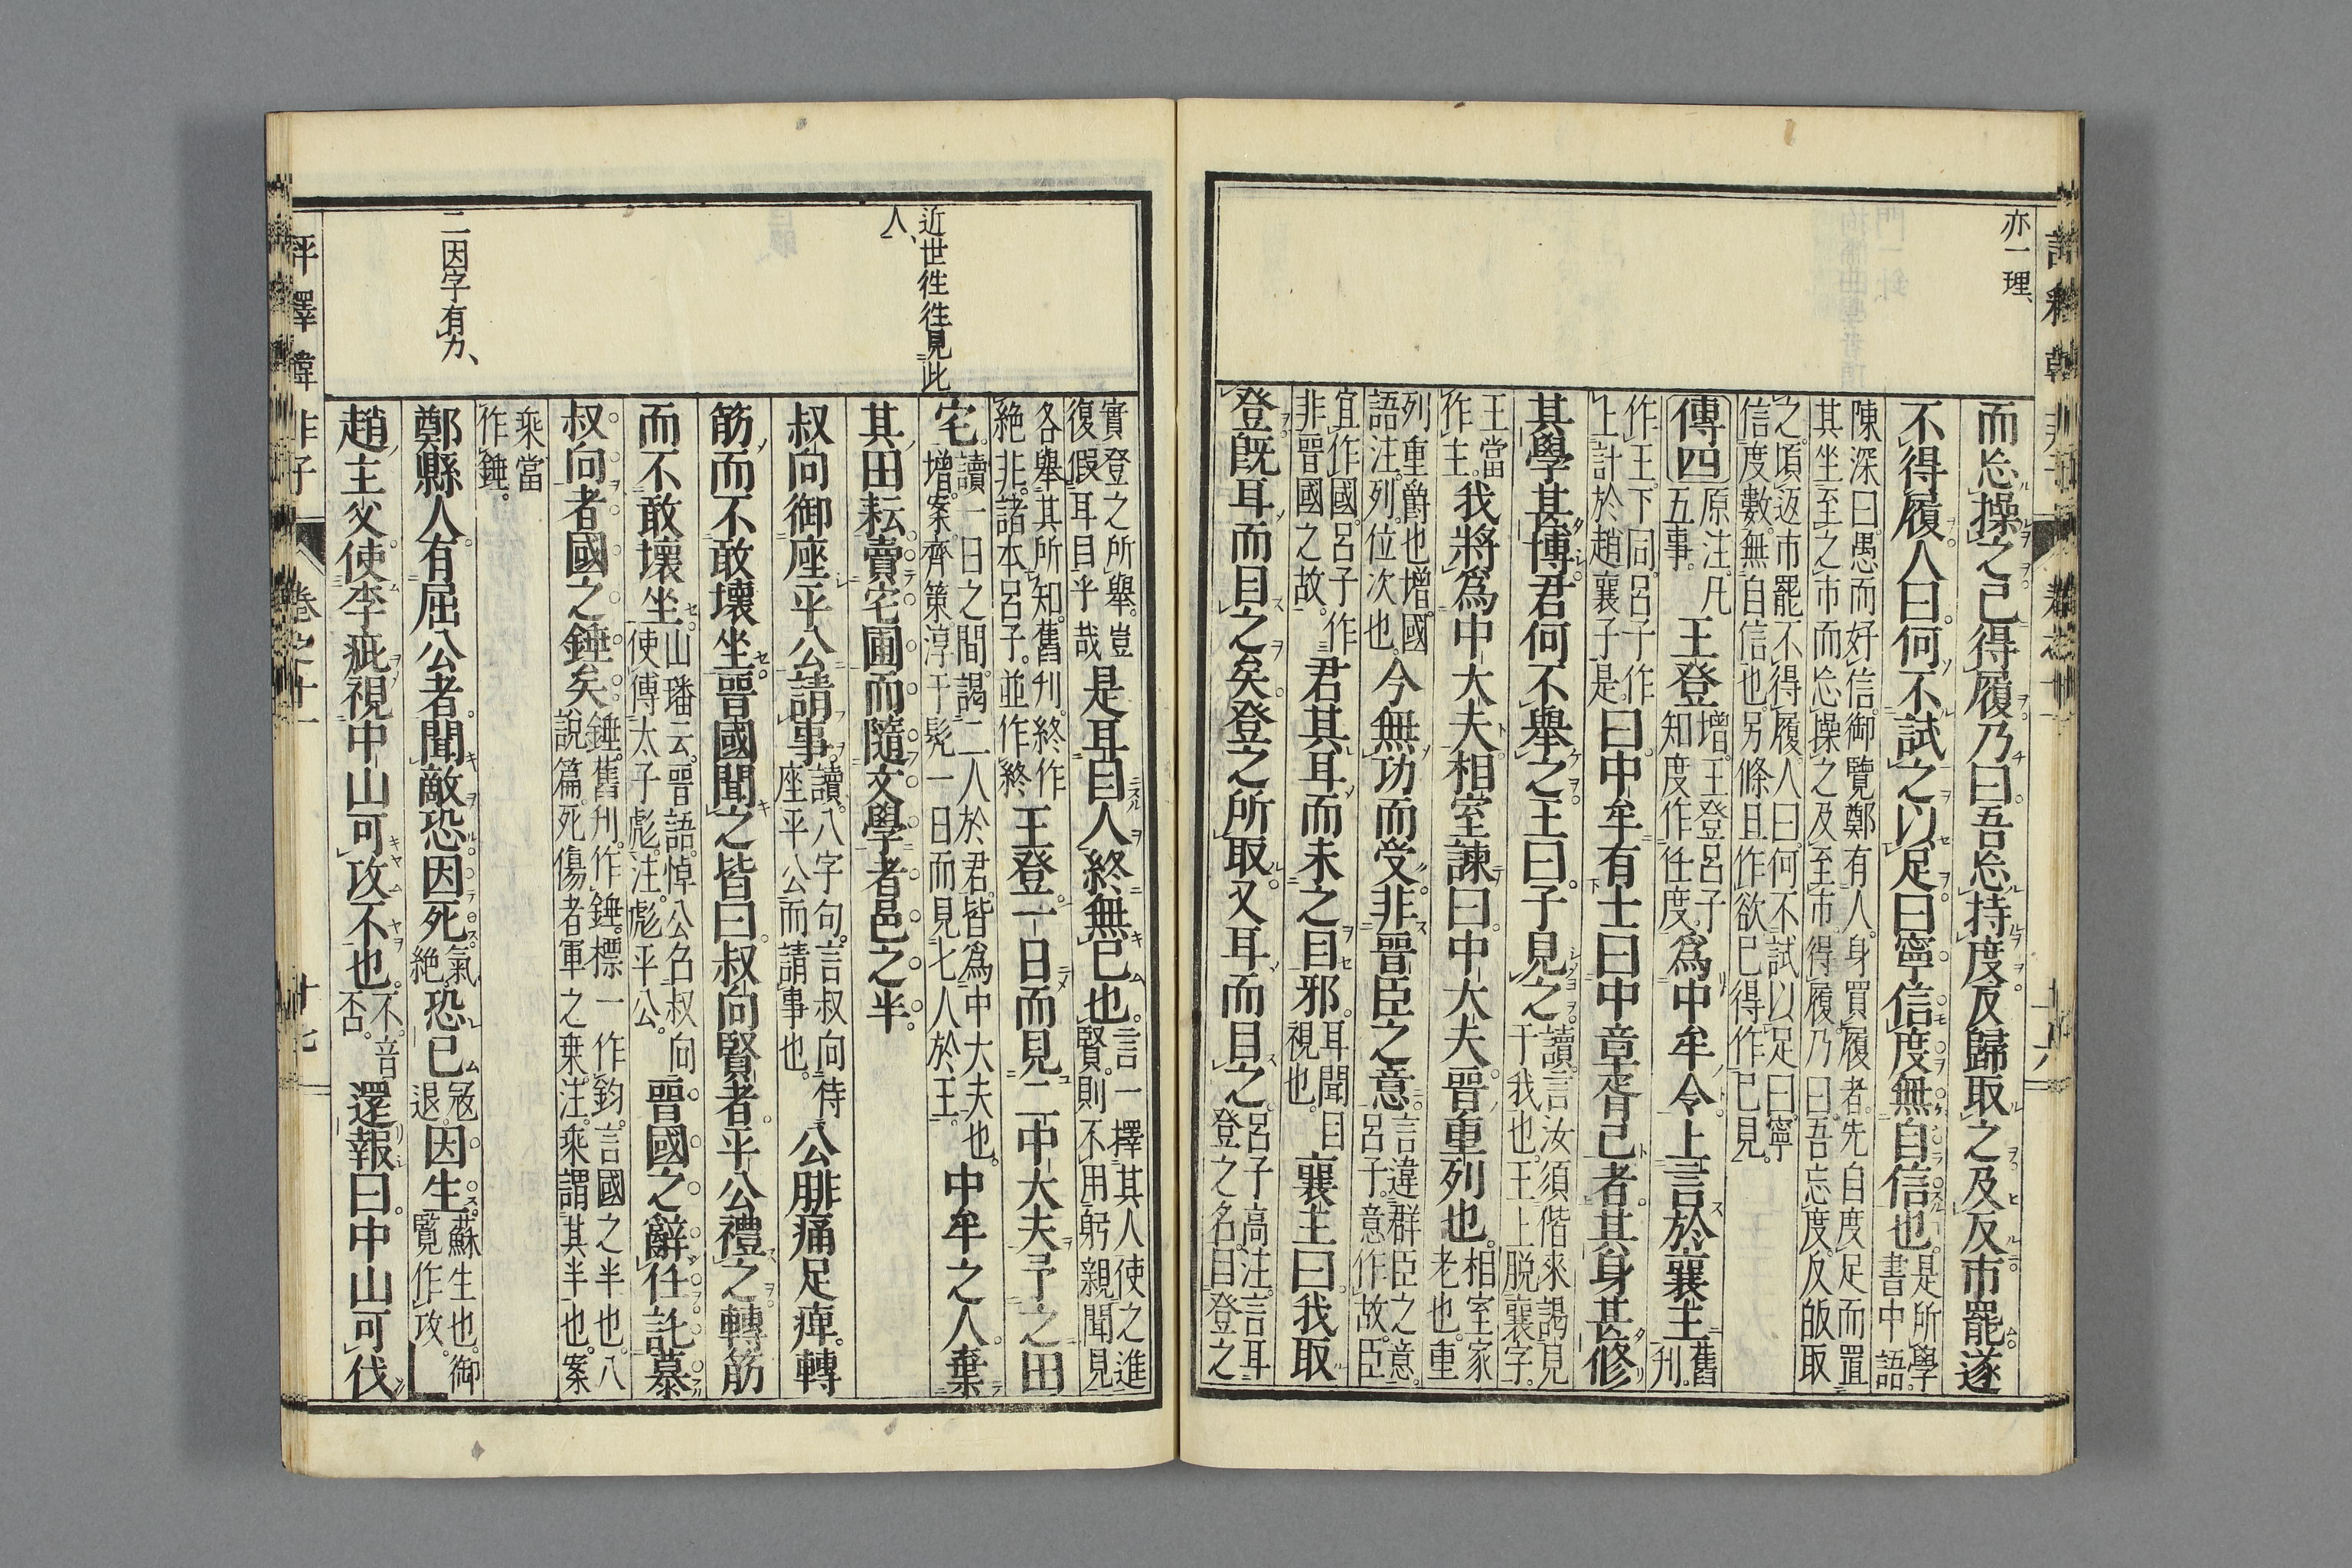 亦一理、
而忩操之已得履乃曰吾忩持度反歸取之及反市罷遂
不得履人曰何不試之以足曰寧信度無自信也是所學書中語
陳深曰愚而好信御覽鄭有人身買履者先自度足而置
其坐至之市而忩操之及至市得履乃曰吾忘度反皈取
之頃返市罷不得履人曰何不試以足曰寧
信度數無自信也另條且作欲已得作已見
傳四原注凡五事王登增王登呂子知度作任度爲中牟令上言於襄主舊刋
作王下同呂子作
上計於趙襄子是曰中牟有士曰中章胥己者其身甚修
其學甚博君何不舉之王曰子見之讀言汝須偕來謁見于我也王上脱襄字
王當作主我將爲中大夫相室諫曰中大夫晋重列也相室家老也重
列重爵也增國
語注列位次也今無功而受非晋臣之意言違群臣之意呂子意作故臣
宜作國呂子作
非晋國之故君其耳而未之目邪耳聞目視也襄主曰我取
登既耳而目之矣登之所取又耳而目之呂子高注言耳登之名目登之
實登之所舉豈
復假耳目乎哉是耳目人終無已也言一擇其人使之進賢則不用躬親聞見
各舉其所知舊刋終作
絶非諸本呂子並作終王登一日而見二中大夫予之田
宅讀一日之間謁二人於君皆爲中大夫也增案齊策淳于髡一日而見七人於王中牟之人棄
其田耘賣宅圃而隨文學者邑之半
叔向御座平公請事讀八字句言叔向侍座平公而請事也公腓痛足痺轉
筋而不敢壞坐晋國聞之皆曰叔向賢者平公禮之轉筋
而不敢壞坐山璠云晋語悼公名叔向使傅太子彪注彪平公晋國之辭任託慕
叔向者國之錘矣錘舊刋作錘標一作鈞言國之半也八說篇死傷者軍之乗注乘謂其半也案
乘當作錘
鄭縣人有屈公者聞敵恐因死氣絶恐已冦退因生蘇生也御覧作攻
趙主父使李疵視中山可攻不也不音否還報曰中山可伐
近世徃徃見此
人、
二因字有力、
評釋韓非子
卷之十一
十七